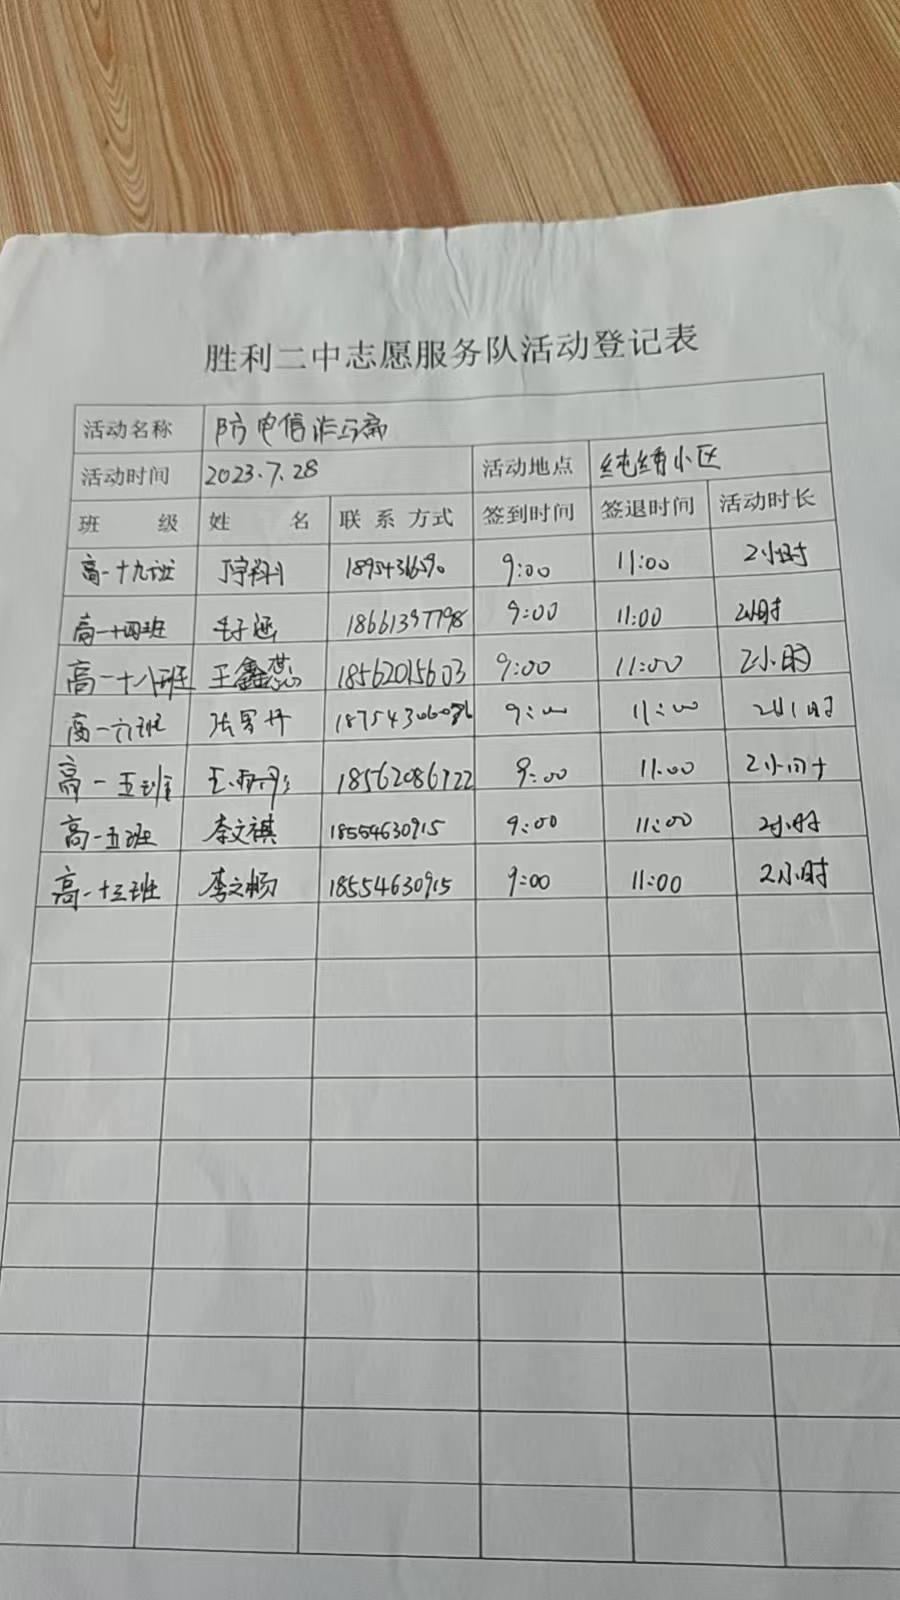 胜利二中志愿服务队活动登记表
活动名称 防电信诈骗
活动时间 2023.7.28 活动地点 纯绣小区
班 级 姓 名 联系方式 签到时间 签退时间 活动时长
高一十九班 9:00 11:00 2小时
高一十四班 18661397798 9:00 11:00 2小时
高一十八班 王鑫蕊 18562015603 9:00 11:00 2小时
高一六班 9:00 11:00 2小时
高一五班 18562086722 9:00 11:00 2小时
高一五班 李文祺 18554630915 9:00 11:00 2小时
高一十三班 李文畅 18554630915 9:00 11:00 2小时